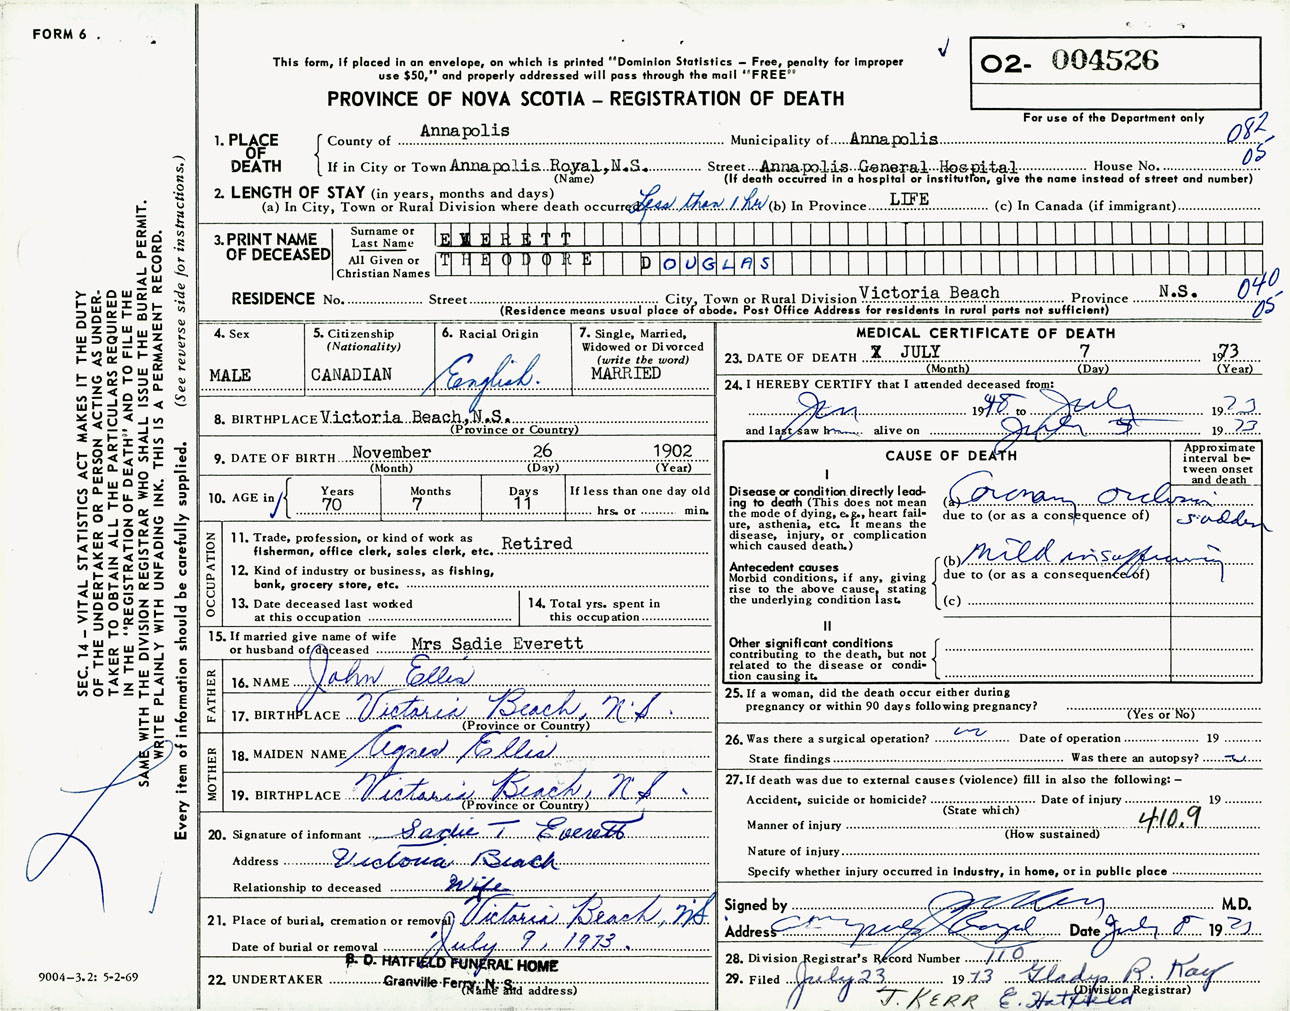 FORM 6 .
This form, if placed in an envelope, on which is printed "Dominion Statistics – Free, penalty for improper
use $50," and properly addressed will pass through the mail "FREE"
PROVINCE OF NOVA SCOTIA – REGISTRATION OF DEATH
O2- 004526
For use of the Department only
082
05
1. PLACE OF DEATH
County of Annapolis Municipality of Annapolis
If in City or Town Annapolis Royal, N.S. Street Annapolis General Hospital House No.
(Name) (If death occurred in a hospital or institution, give the name instead of street and number)
2. LENGTH OF STAY (in years, months and days)
(a) In City, Town or Rural Division where death occurred Less than 1 hr (b) In Province LIFE (c) In Canada (if immigrant)
3. PRINT NAME OF DECEASED
Surname or Last Name EVERETT
All Given or Christian Names THEODORE DOUGLAS
RESIDENCE No. Street City, Town or Rural Division Victoria Beach Province N.S.
040
05
(Residence means usual place of abode. Post Office Address for residents in rural parts not sufficient)
4. Sex
MALE
5. Citizenship
(Nationality)
CANADIAN
6. Racial Origin
English.
7. Single, Married,
Widowed or Divorced
(write the word)
MARRIED
8. BIRTHPLACE Victoria Beach, N.S.
(Province or Country)
9. DATE OF BIRTH November 26 1902
(Month) (Day) (Year)
10. AGE in
Years Months Days If less than one day old
70 7 11 hrs. or min.
OCCUPATION
11. Trade, profession, or kind of work as
fisherman, office clerk, sales clerk, etc. Retired
12. Kind of industry or business, as fishing,
bank, grocery store, etc.
13. Date deceased last worked
at this occupation
14. Total yrs. spent in
this occupation
15. If married give name of wife
or husband of deceased Mrs Sadie Everett
FATHER
16. NAME John Ellis
17. BIRTHPLACE Victoria Beach, N.S.
(Province or Country)
MOTHER
18. MAIDEN NAME Agnes Ellis
19. BIRTHPLACE Victoria Beach, N.S.
(Province or Country)
20. Signature of informant Sadie T Everett
Address Victoria Beach
Relationship to deceased Wife
21. Place of burial, cremation or removal Victoria Beach, NS
Date of burial or removal July 9, 1973.
B. D. HATFIELD FUNERAL HOME
22. UNDERTAKER Granville Ferry, N. S.
(Name and address)
MEDICAL CERTIFICATE OF DEATH
23. DATE OF DEATH X JULY 7 1973
(Month) (Day) (Year)
24. I HEREBY CERTIFY that I attended deceased from:
Jan 1948 to July 1973
and last saw h alive on July 5 1973
CAUSE OF DEATH
Approximate
interval be-
tween onset
and death
I
Disease or condition directly lead-
ing to death (This does not mean
the mode of dying, e.g., heart fail-
ure, asthenia, etc. It means the
disease, injury, or complication
which caused death.)
(a) Coronary occlusion
due to (or as a consequence of)
sudden
Antecedent causes
Morbid conditions, if any, giving
rise to the above cause, stating
the underlying condition last.
(b) Mild insufficiency
due to (or as a consequence of)
(c)
II
Other significant conditions
contributing to the death, but not
related to the disease or condi-
tion causing it.
25. If a woman, did the death occur either during
pregnancy or within 90 days following pregnancy?
(Yes or No)
26. Was there a surgical operation? Date of operation 19
State findings Was there an autopsy?
27. If death was due to external causes (violence) fill in also the following: –
Accident, suicide or homicide? Date of injury 19
(State which)
Manner of injury 410.9
(How sustained)
Nature of injury
Specify whether injury occurred in industry, in home, or in public place
Signed by M.D.
Address Annapolis Royal Date July 8 1973
28. Division Registrar's Record Number 110
29. Filed July 23 1973 Gladys R. Kay
(Division Registrar)
J. KERR E. Hatfield
SEC. 14 – VITAL STATISTICS ACT MAKES IT THE DUTY
OF THE UNDERTAKER OR PERSON ACTING AS UNDER-
TAKER TO OBTAIN ALL THE PARTICULARS REQUIRED
IN THE "REGISTRATION OF DEATH" AND TO FILE THE
SAME WITH THE DIVISION REGISTRAR WHO SHALL ISSUE THE BURIAL PERMIT.
WRITE PLAINLY WITH UNFADING INK. THIS IS A PERMANENT RECORD.
Every item of information should be carefully supplied. (See reverse side for instructions.)
9004-3.2: 5-2-69